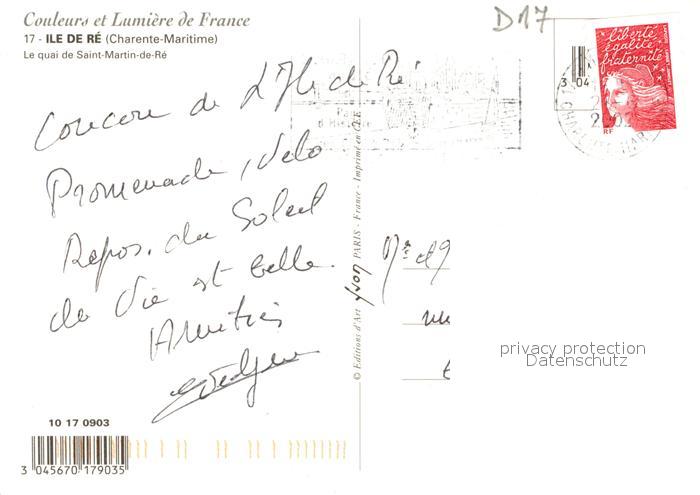 Couleurs et Lumière de France
17 - ILE DE RÉ (Charente-Maritime)
Le quai de Saint-Martin-de-Ré
D17
liberté
égalité
fraternité
RF
Coucou de L'Ile de Ré
Promenade, Velo
Repos. du Soleil
da Vie est belle.
Amitiés
© Editions d'Art yvon PARIS - France - Imprimé en CEE
privacy protection
Datenschutz
10 17 0903
3 045670 179035